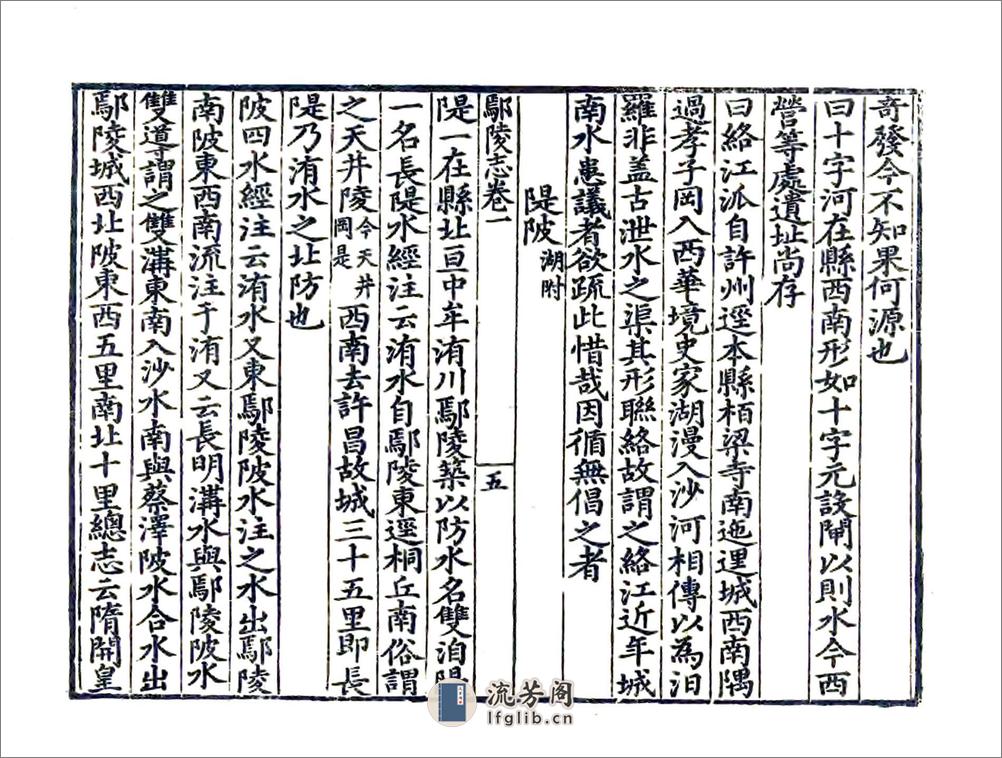 奇發今不知果何源也
曰十字河在縣西南形如十字元設閘以則水今西
營等處遺址尚存
曰絡江派自許州逕本縣栢梁寺南迤逕城西南隅
過孝子岡入西華境史家湖漫入沙河相傳以為汨
羅非盖古泄水之渠其形聯絡故謂之絡江近年城
南水患議者欲疏此惜哉因循無倡之者
隄陂 湖附
鄢陵志卷一
五
隄一在縣北亘中牟洧川鄢陵築以防水名雙洎隄
一名長隄水經注云洧水自鄢陵東逕桐丘南俗謂
之天井陵 今天井岡是 西南去許昌故城三十五里即長
隄乃洧水之北防也
陂四水經注云洧水又東鄢陵陂水注之水出鄢陵
南陂東西南流注于洧又云長明溝水與鄢陵陂水
雙導謂之雙溝東南入沙水南與蔡澤陂水合水出
鄢陵城西北陂東西五里南北十里總志云隋開皇
流芳阁
lfglib.cn